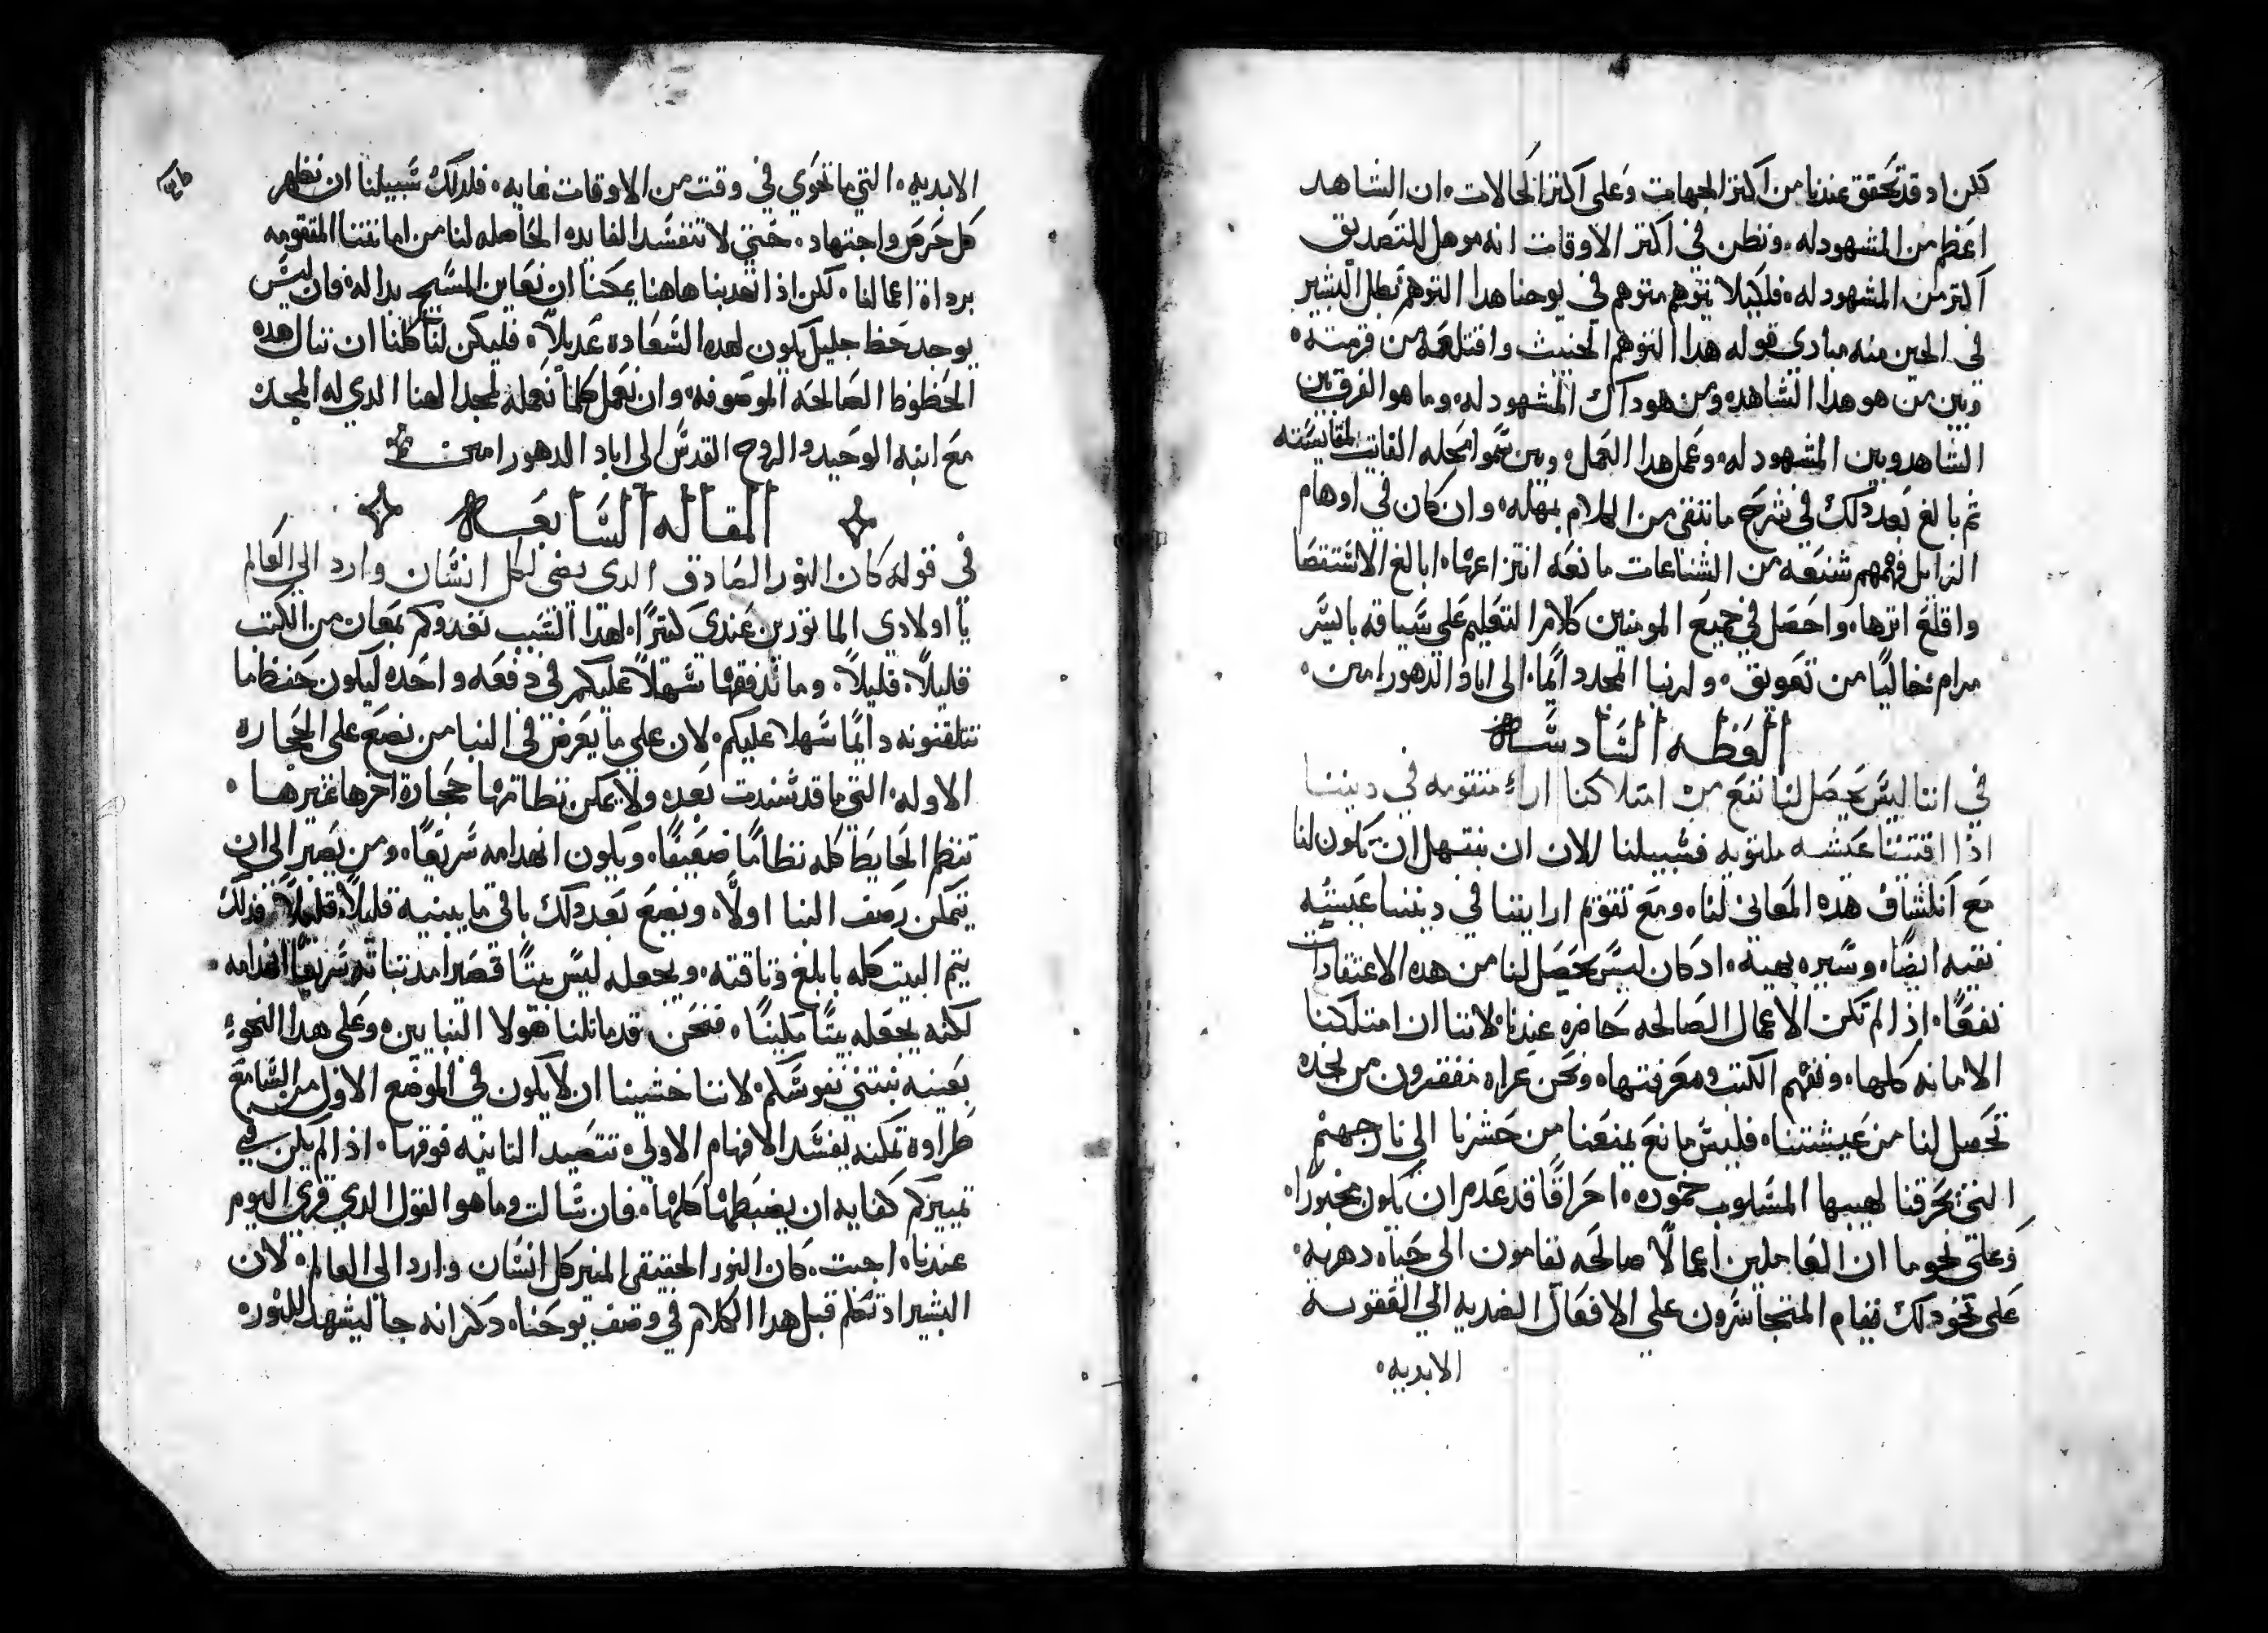 لكن اد قد تحقق عندنا من اكتر الجهات وعلى اكتر الحالات ٠ ان الشاهد
اعظم من المشهود له ٠ ونظن في اكتر الاوقات انه موهل للتصديق
اكتر من المشهود له ٠ فلكيلا يتوهم متوهم في يوحنا هدا التوهم بطل البشير
في الحين منه مبادي قوله هدا التوهم الخبيث واقتلعه من قرمته ٠
وبين من هو هدا الشاهد ومن هو داك المشهود له ٠ وما هو الفرق بين
الشاهد وبين المشهود له ٠ وعمل هدا العمل ٠ وبين سموا محله الفايت لمقايسته
ثم بالغ بعد دلك في شرح ما تبقى من الكلام بمهله ٠ وان كان في اوهام
الزايل فهمهم شنيعه من الشناعات مانعه انتزاعها ٠ ابالغ الاستقصا
واقلع اترها ٠ واحصل في جميع المومنين كلام التعليم على سياقه بايسر
مرام خاليًا من تعويق ٠ ولربنا المجد دايمًا الى اباد الدهور امين ٠
العظه السادسه
في اننا ليس يحصل لنا نفع من امتلاكنا اراء متقومه في ديننا
ادا اقتنينا عيشه ملتويه فسبيلنا الان ان نبتهل ان يكون لنا
مع انكشاف هده المعاني لنا ٠ ومع تقوم ارايتنا في ديننا عيشه
نقيه ايضًا ٠ وسيره بهيه ٠ اد كان ليس يحصل لنا من هده الاعتقادات
نفعًا ٠ اذا لم تكن الاعمال الصالحه حاضره عندنا ٠ لاننا ان امتلكنا
الامانه كلها ٠ وفهم الكتب ومعرفتها ٠ ونحن عراه مفتقرون من نجده
تحصل لنا من عيشتنا ٠ فليس مانع يمنعنا من حشرنا الي نار جهنم
التي تحرقنا لهيبها المسلوب خموده ٠ احراقًا قد عدم ان يكون مخبورًا ٠
وعلى نحو ما ان العاملين اعمالًا صالحه يقامون الى حياه دهريه ٠
على نحو دلك يقام المتجاسرون علي الافعال الضديه الي العقوبه
الابديه ٠
الابديه ٠ التي ما تحوي في وقت من الاوقات نهايه ٠ فلدلك سبيلنا ان نظهر
كل حرص واجتهاد ٠ حتي لا تنفسد الفايده الحاصله لنا من امانتنا المتقومه
برداة اعمالنا ٠ لكن اذا تهدبنا هاهنا يمكننا ان نعاين المسيح بداله ٠ فان ليس
يوجد حظ جليل يكون لهده السعاده عديلًا ٠ فليكن لنا كلنا ان ننال هده
الحظوظ الصالحه الموصوفه ٠ وان نعمل كلما نعمله لمجد الهنا الدي له المجد
مع ابنه الوحيد والروح القدس الى اباد الدهور امين
المقاله السابعه
في قوله كان النور الصادق الدي يضي لكل انسان وارد الي العالم
يا اولادي الماتورين عندي كتيرًا ٠ لهدا السبب نغدوكم بمعان من الكتب
قليلًا قليلًا ٠ وما ندفقها سهلًا عليكم في دفعه واحده ليكون حفظ ما
تتلقنونه دايمًا سهلا عليكم ٠ لان علي ما يعرض في البنا من يضع على الحجاره
الاوله ٠ التي ما قد تشددت بعد ٠ ولا يمكن نظامها حجارة اخرها غيرها ٠
تنظم الحايط كله نظامًا ضعيفًا ٠ ويكون انهدامه سريعًا ٠ ومن يصبر الي ان
يتمكن رصف البنا اولًا ٠ ويضع بعد دلك باقي ما يبنيه قليلًا قليلًا ٠ فدلك
يتم البيت كله بابلغ وثاقته ٠ ويجعله ليس بيتًا قصيرا مدتناته سريعًا انهدامه ٠
لكنه يجعله بيتًا مكينًا ٠ فنحن قد ماتلنا هولا البنايين ٠ وعلى هدا النحو
بعينه نبتني نفوسكم ٠ لاننا خشينا ان لا يكون في الموضع الاول من السامع
طراوة تمكنه يفسد الافهام الاولى ٠ تنضيد التانيه فوقها ٠ اذا لم يكن في
تمييزكم كفايه ان يضبطها كلها ٠ فان سالت وما هو القول الدي قري اليوم
عندنا ٠ اجبت ٠ كان النور الحقيقي المنير كل انسان وارد الى العالم ٠ لان
البشير اد تكلم قبل هدا الكلام في وصف يوحنا ٠ دكر انه جا ليشهد للنور ٠